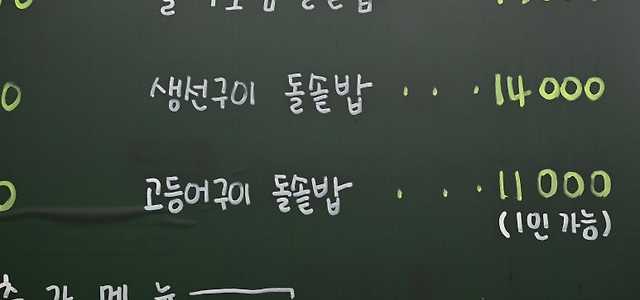 돌솥밥
0 생선구이 돌솥밥 ・・・ 14000
0 고등어구이 돌솥밥 ・・・ 11000
(1인 가능)
추가메뉴